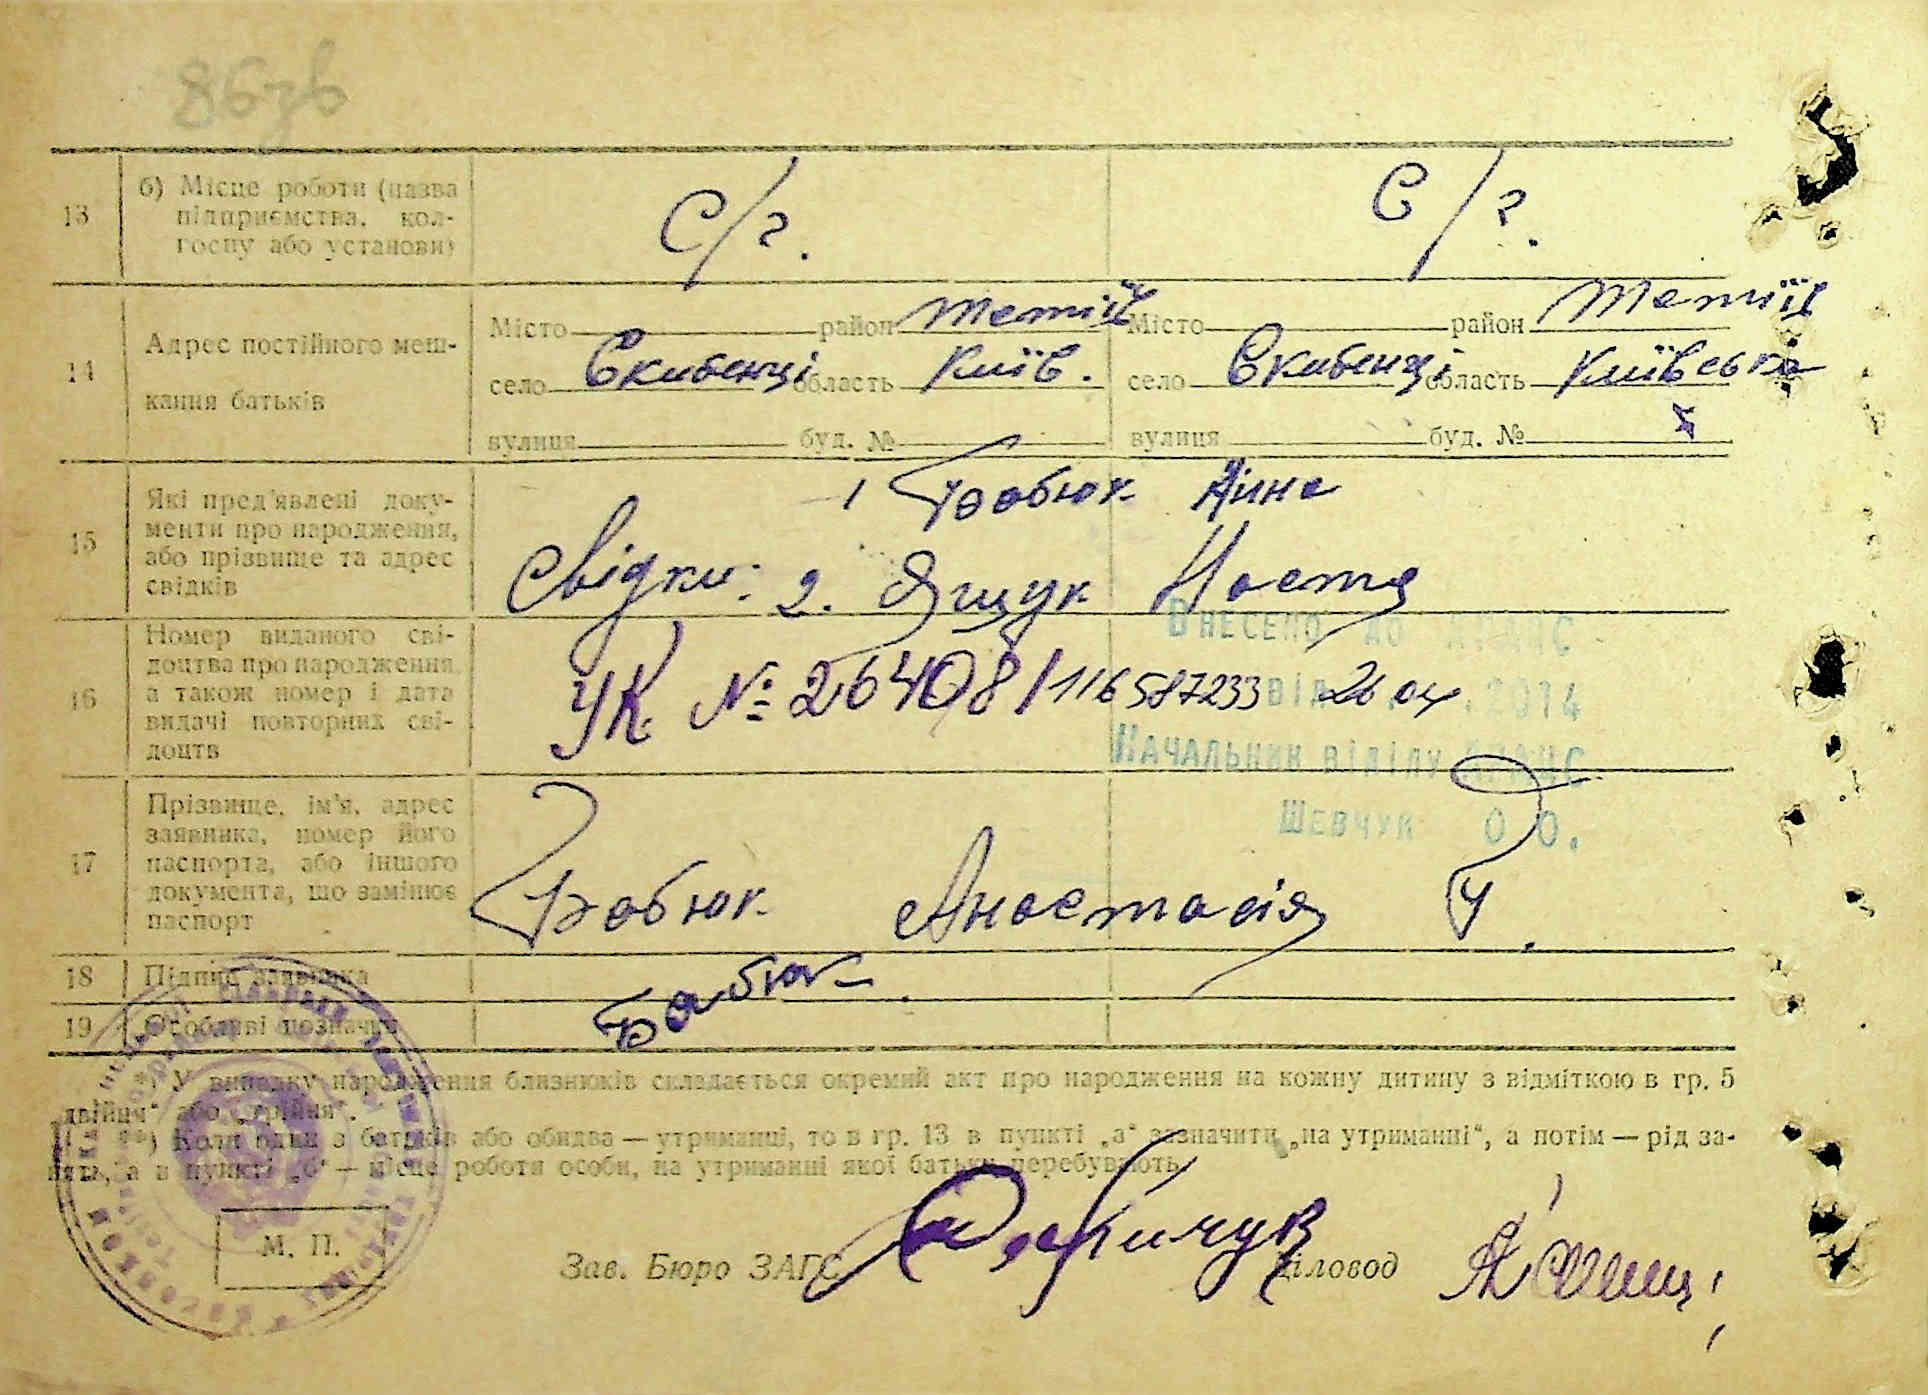 86зв
13 б) Місце роботи (назва
підприємства, кол-
госпу або установи)
С/г. С/г.
14 Адрес постійного меш-
кання батьків
Місто район Тетіїв Місто район Тетіїв
село Скибенці область Київ. село Скибенці область Київська
вулиця буд. № вулиця буд. №
15 Які пред'явлені доку-
менти про народження,
або прізвище та адрес
свідків
1 Бабюк Анна
Свідки: 2. Ящук Настя
16 Номер виданого сві-
доцтва про народження,
а також номер і дата
видачі повторних сві-
доцтв
УК № 26408 / 116587233 26 04
Внесено до
від 2014
Начальник відділу
Шевчук О О.
17 Прізвище, ім'я, адрес
заявника, номер його
паспорта, або іншого
документа, що замінює
паспорт
Бабюк Анастасія
18 Підпис заявника Бабюк
19 Особливі позначки
У випадку народження близнюків складається окремий акт про народження на кожну дитину з відміткою в гр. 5
„двійня“ або „трійня“.
Коли один з батьків або обидва — утриманці, то в гр. 13 в пункті „а“ зазначити „на утриманні“, а потім — рід за-
нять, а в пункті „б“ — місце роботи особи, на утриманні якої батьки перебувають.
М. П.
Зав. Бюро ЗАГС Діловод